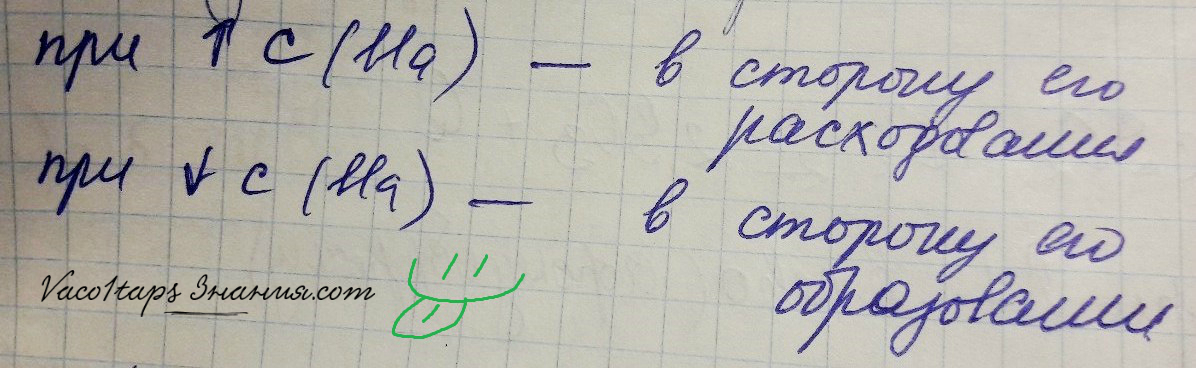 при ↑ с (На) — в сторону его
расходования
при ↓ с (На) — в сторону его
образования
Vaco1tapз Знания.com